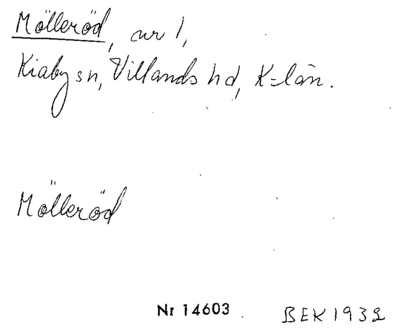 Mölleröd, nr 1,
Kiaby sn, Villands hd, K-län.
Mölleröd
Nr 14603
BEK 1932